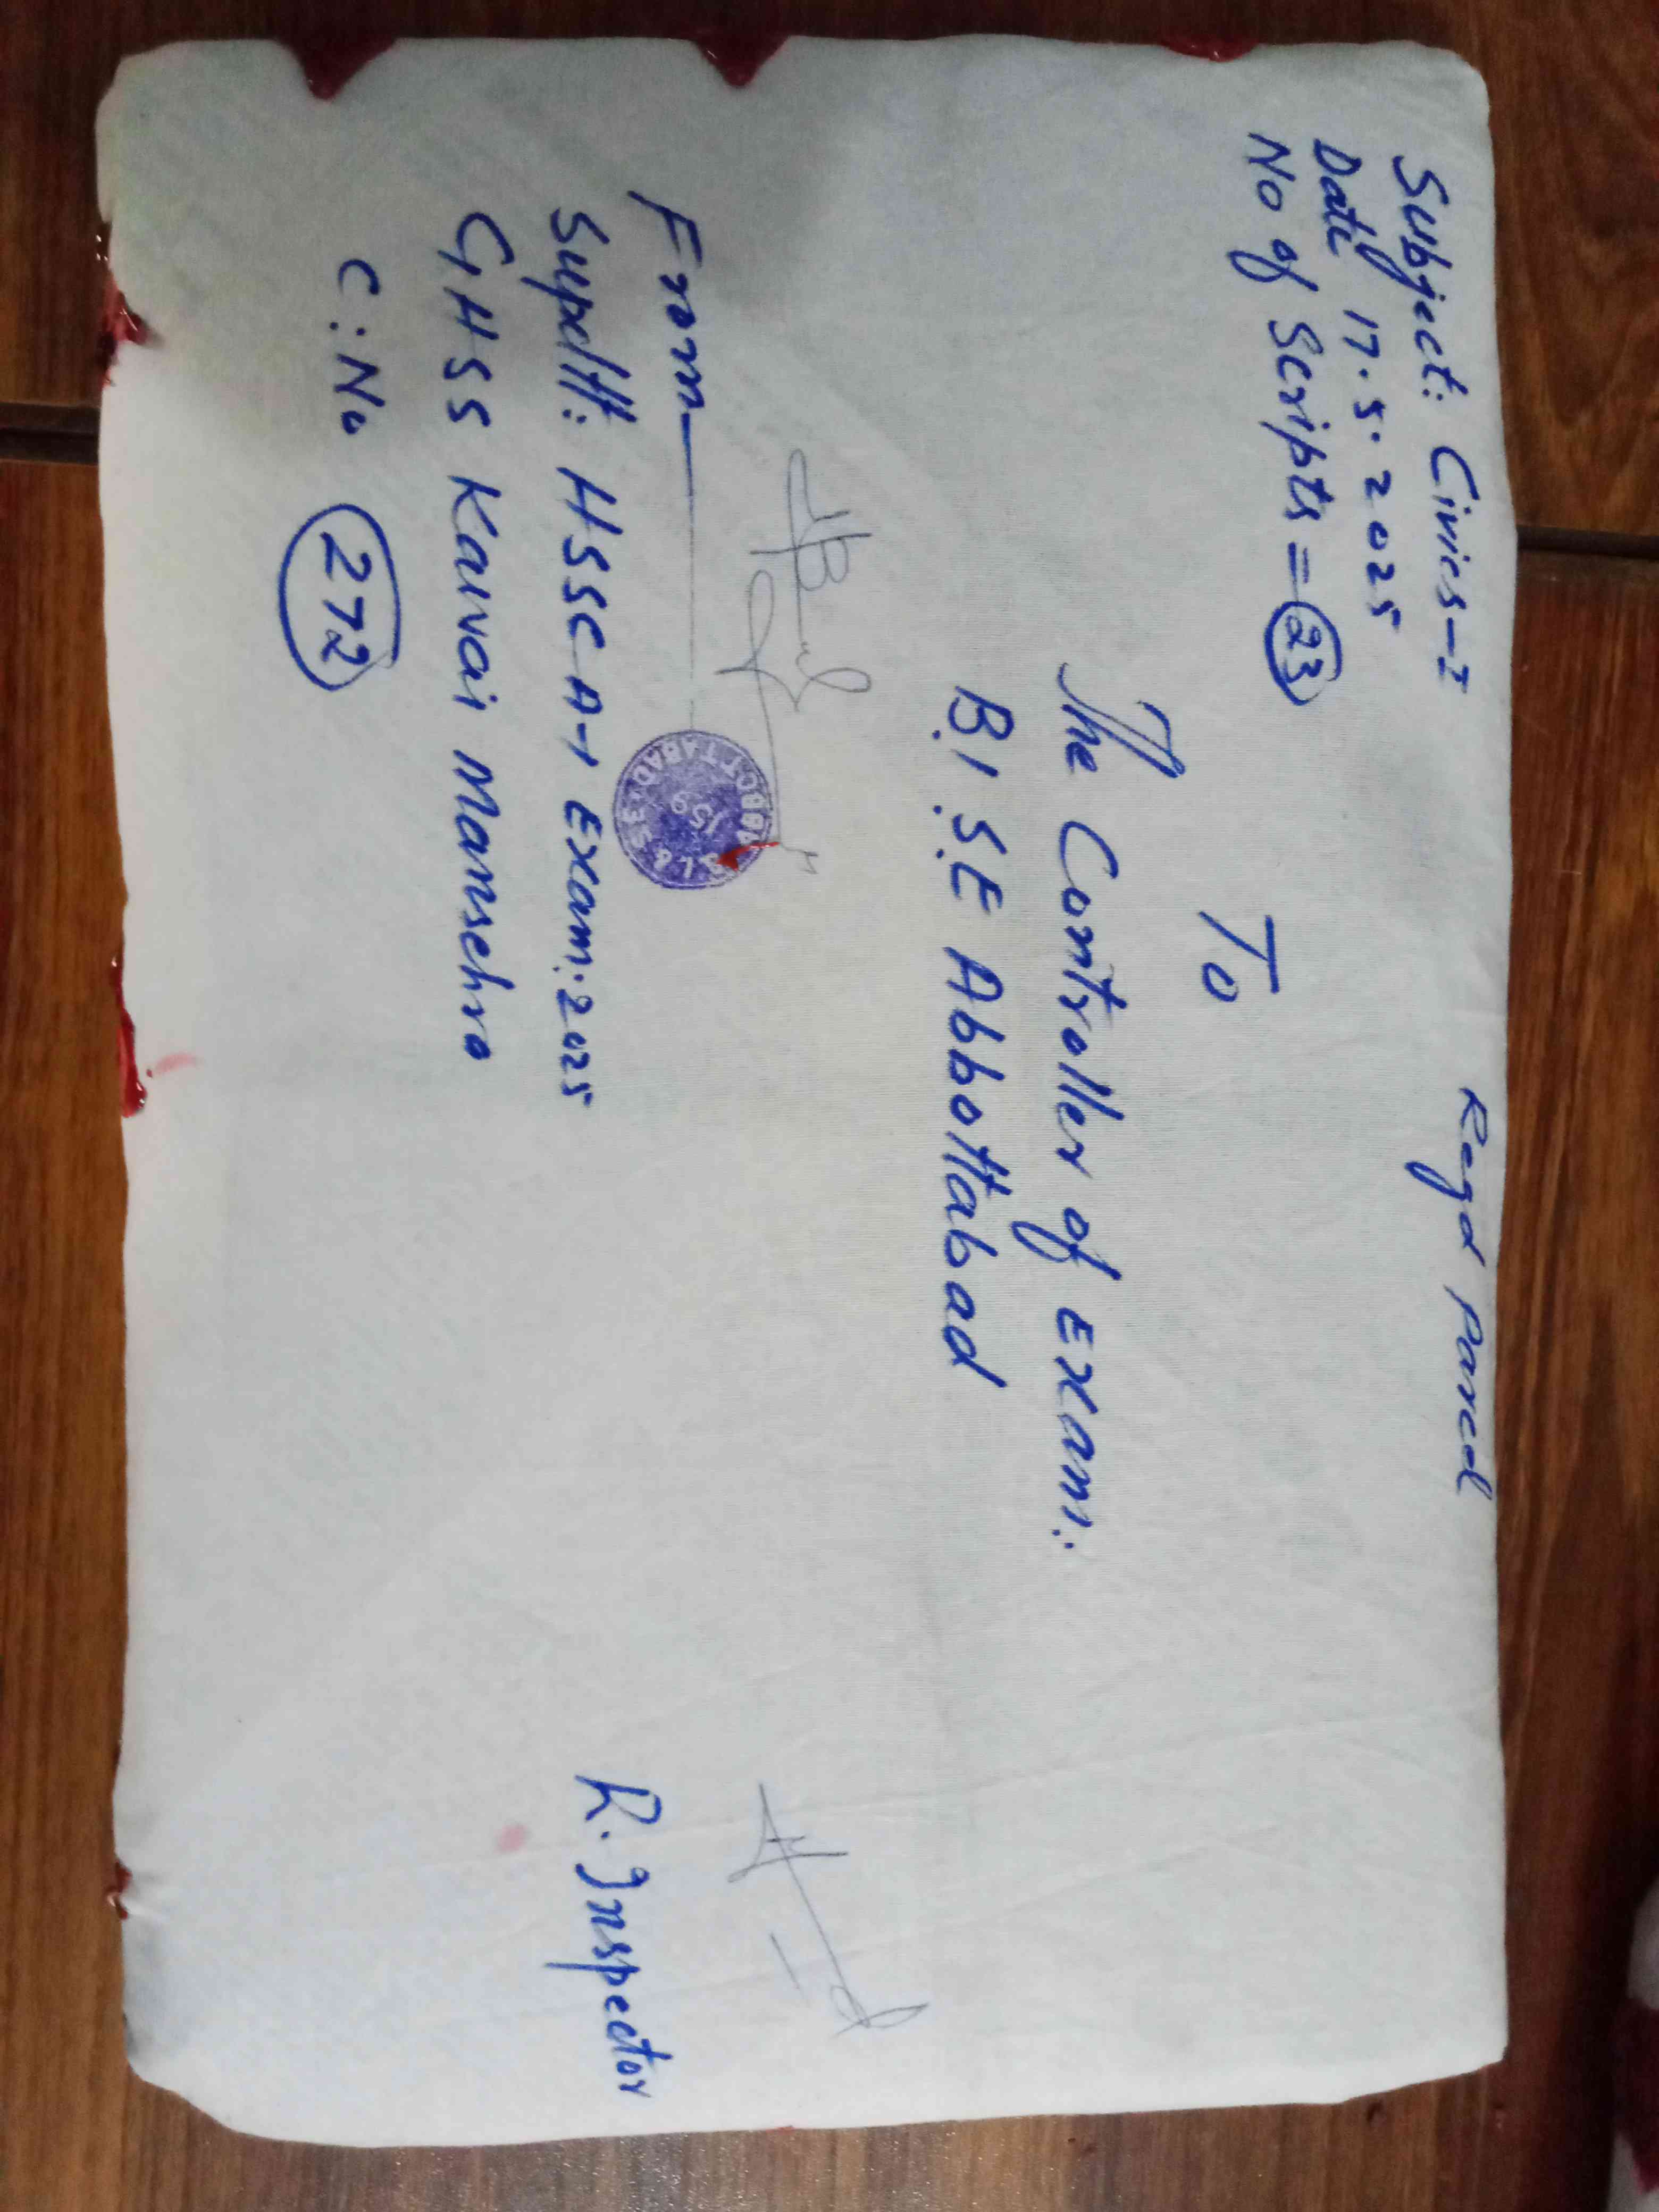 Regd Parcel
Subject: Civics-I
Date 17.5.2025
No of Scripts = 23
To
The Controller of Exam:
B.I.S.E Abbottabad
From
Supdtt: HSSC A-I Exam: 2025
GHSS Kawai Mansehra
C:No 272
R. Inspector
ABBOTTABAD
159